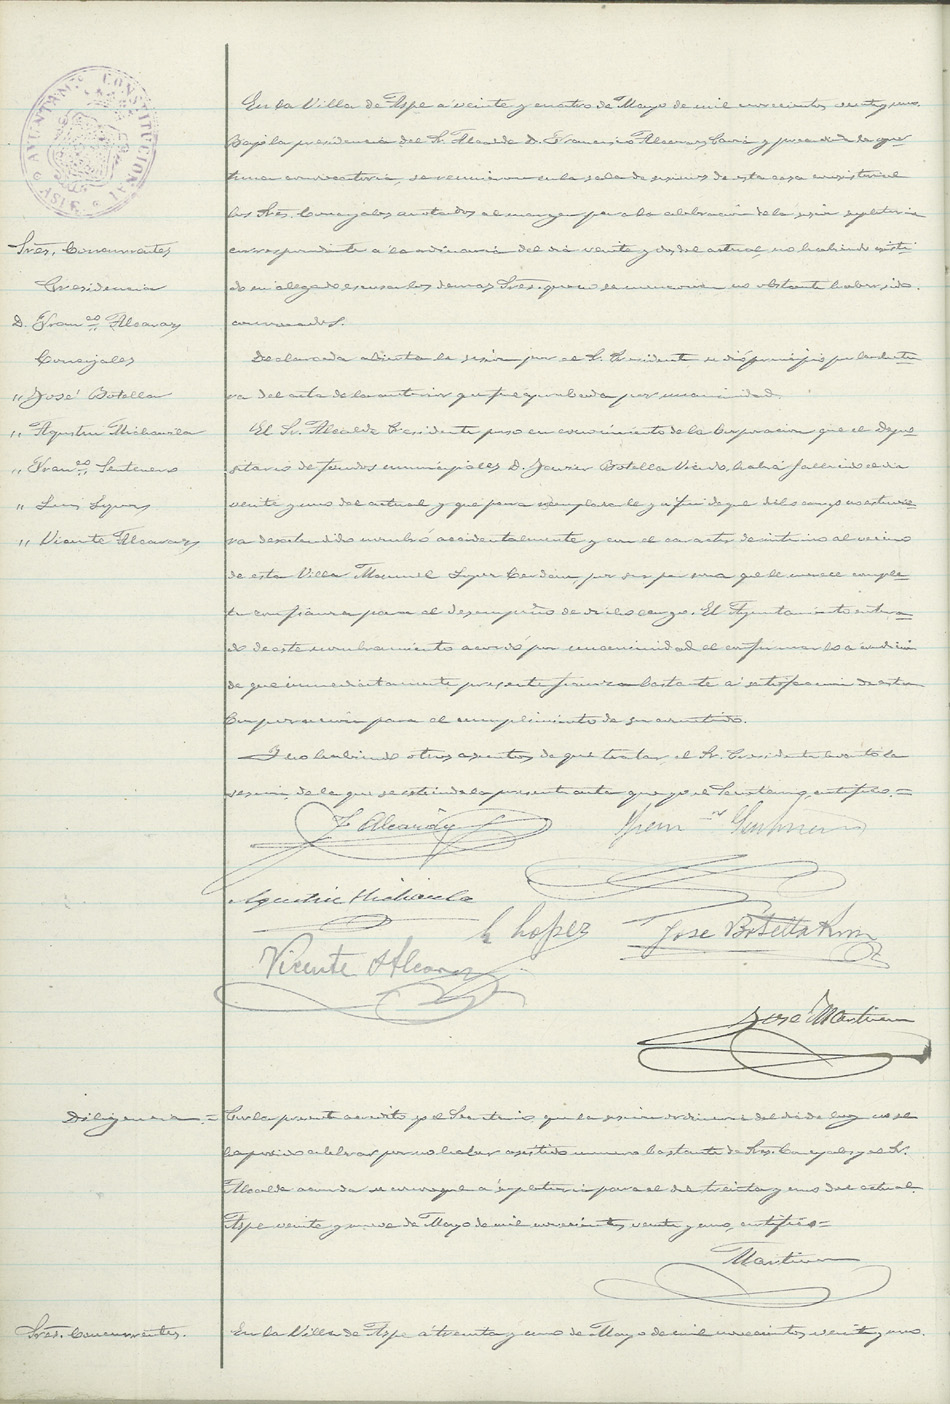 AYUNTAM.º CONSTITUCIONAL
ASPE
En la Villa de Aspe a veinte y cuatro de Mayo de mil novecientos veinte y uno.
Bajo la presidencia del Sr. Alcalde D. Francisco Alcaraz y previa la opor
tuna convocatoria, se reunieron en la sala de sesiones de esta casa consistorial
los Sres. Concejales anotados al margen para la celebracion de la sesion supletoria
Sres. Concurrentes
correspondiente a la ordinaria del dia veinte y dos del actual, no habiendo asisti-
Presidencia
do ni alegado escusa los demas Sres. que no se mencionan no obstante haber sido
D. Franco Alcaraz
convocados.
Concejales
Declarada abierta la sesion por el Sr. Presidente se dió principio por la lectu-
" José Botella
ra del acta de la anterior que fue aprobada por unanimidad.
" Agustin Michavila
El Sr. Alcalde Presidente puso en conocimiento de la Corporacion que el Depo-
" Franco Senteneno
sitario de fondos municipales D. Javier Botella habia fallecido el dia
" Luis Lopez
veinte y uno del actual y que para reemplazarle y a fin de que dicho cargo no estuvie-
" Vicente Alcaraz
ra desatendido nombró accidentalmente y con el caracter de interino al vecino
de esta Villa Manuel Lopez Cerdán por ser persona que le merece comple-
ta confianza para el desempeño de dicho cargo. El Ayuntamiento entera-
do de este nombramiento acordó por unanimidad el confirmarlo a condicion
de que inmediatamente presente fianza bastante a satisfaccion de esta
Corporacion para el cumplimiento de su cometido.
Y no habiendo otros asuntos de que tratar el Sr. Presidente levantó la
sesion, de la que se estiende la presente acta que yo el Secretario, certifico.=
F Alcaraz
Agustin Michavila
L Lopez
Jose Botella
Vicente Alcaraz
José Martinez
Diligencia.=
Por la presente acredito yo el Secretario que la sesion ordinaria del dia de hoy no se
ha podido celebrar por no haber asistido numero bastante de Sres. Concejales y el Sr.
Alcalde acuerda se convoque a supletoria para el dia treinta y uno del actual.
Aspe veinte y nueve de Mayo de mil novecientos veinte y uno, certifico=
Martinez
Sres. Concurrentes.
En la Villa de Aspe a treinta y uno de Mayo de mil novecientos veinte y uno.